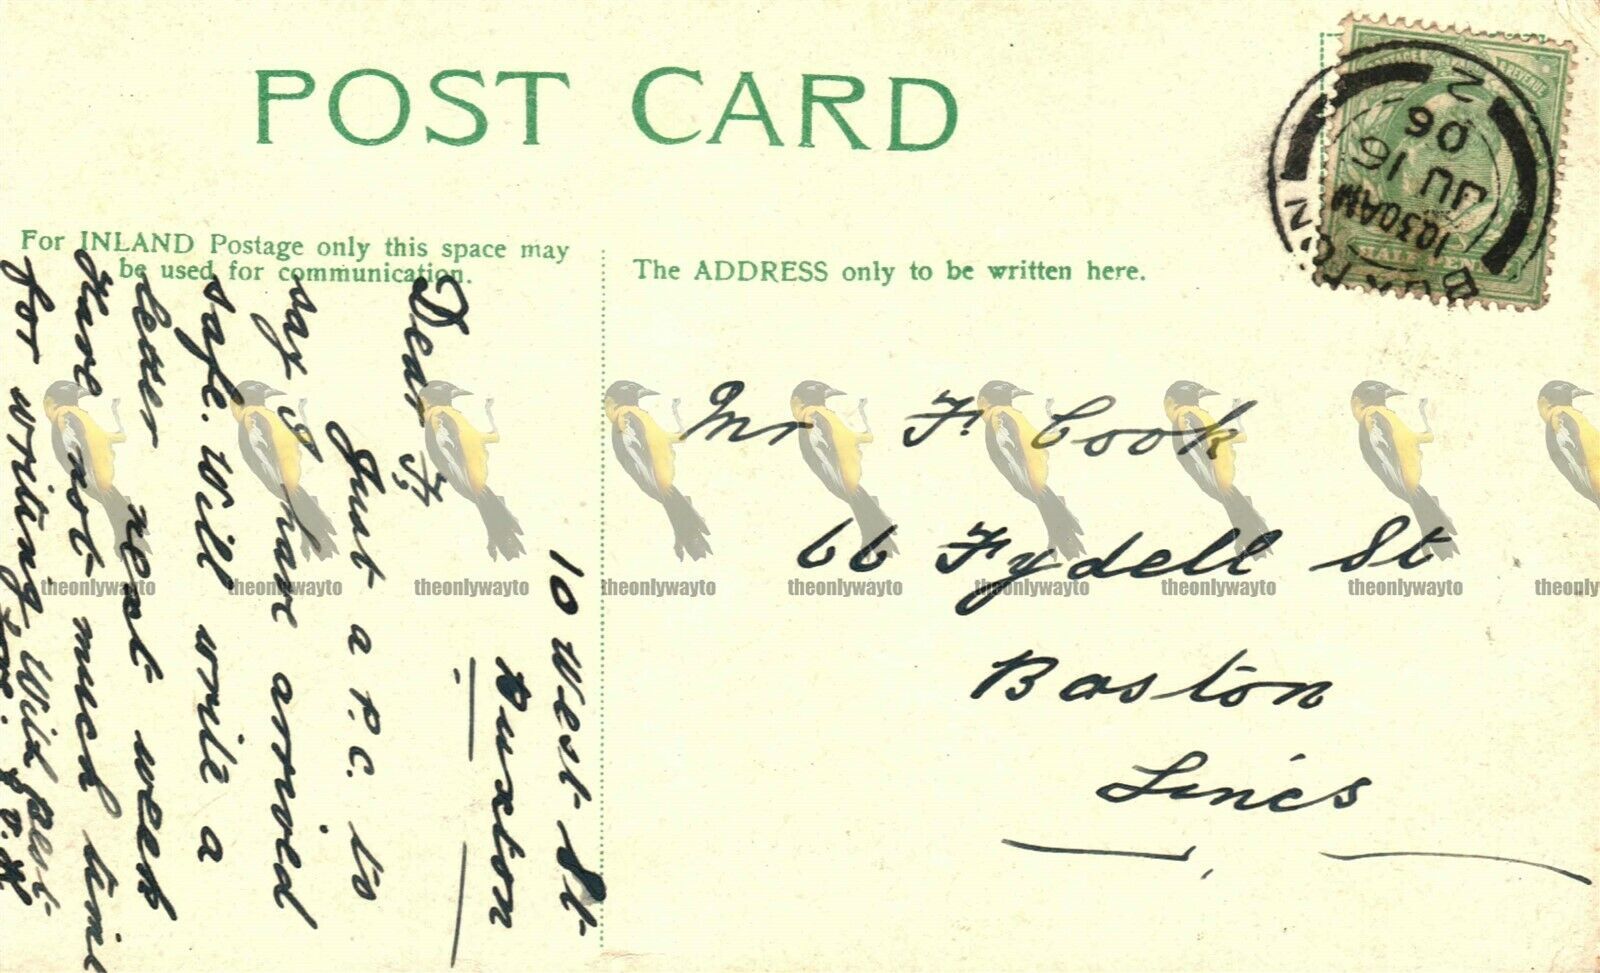 POST CARD
For INLAND Postage only this space may
be used for communication.
The ADDRESS only to be written here.
BUXTON
10.30AM
JU 16
06
2
REVENUE
HALFPENNY
Mr F. Cook
66 Fydell St
Boston
Lincs
10 West St
Buxton
Dear F,
Just a P.C. to
say I have arrived
safe. Will write a
letter next week
Have not much time
for writing With best
love.
theonlywayto theonlywayto theonlywayto theonlywayto theonlywayto theonlywayto theonlywayto theonlywayto theonly